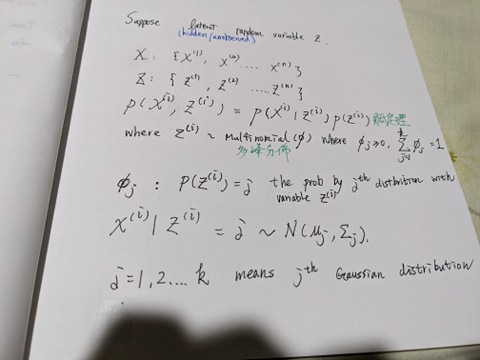 Suppose latent random variable z.
(hidden/unobserved)
X : {x⁽¹⁾, x⁽²⁾ ..... x⁽ⁿ⁾}
Z : {z⁽¹⁾, z⁽²⁾ ..... z⁽ⁿ⁾}
p(x⁽ⁱ⁾, z⁽ⁱ⁾) = p(x⁽ⁱ⁾ | z⁽ⁱ⁾) p(z⁽ⁱ⁾)
where z⁽ⁱ⁾ ~ Multinomial(φ) where φⱼ ≥ 0, Σⱼ₌₁ᵏ φⱼ = 1
多峰分佈
φⱼ : p(z⁽ⁱ⁾) = j the prob by jᵗʰ distribition with
variable z⁽ⁱ⁾
x⁽ⁱ⁾ | z⁽ⁱ⁾ = j ~ N(μⱼ, Σⱼ).
j = 1, 2, ... k means jᵗʰ Gaussian distribution